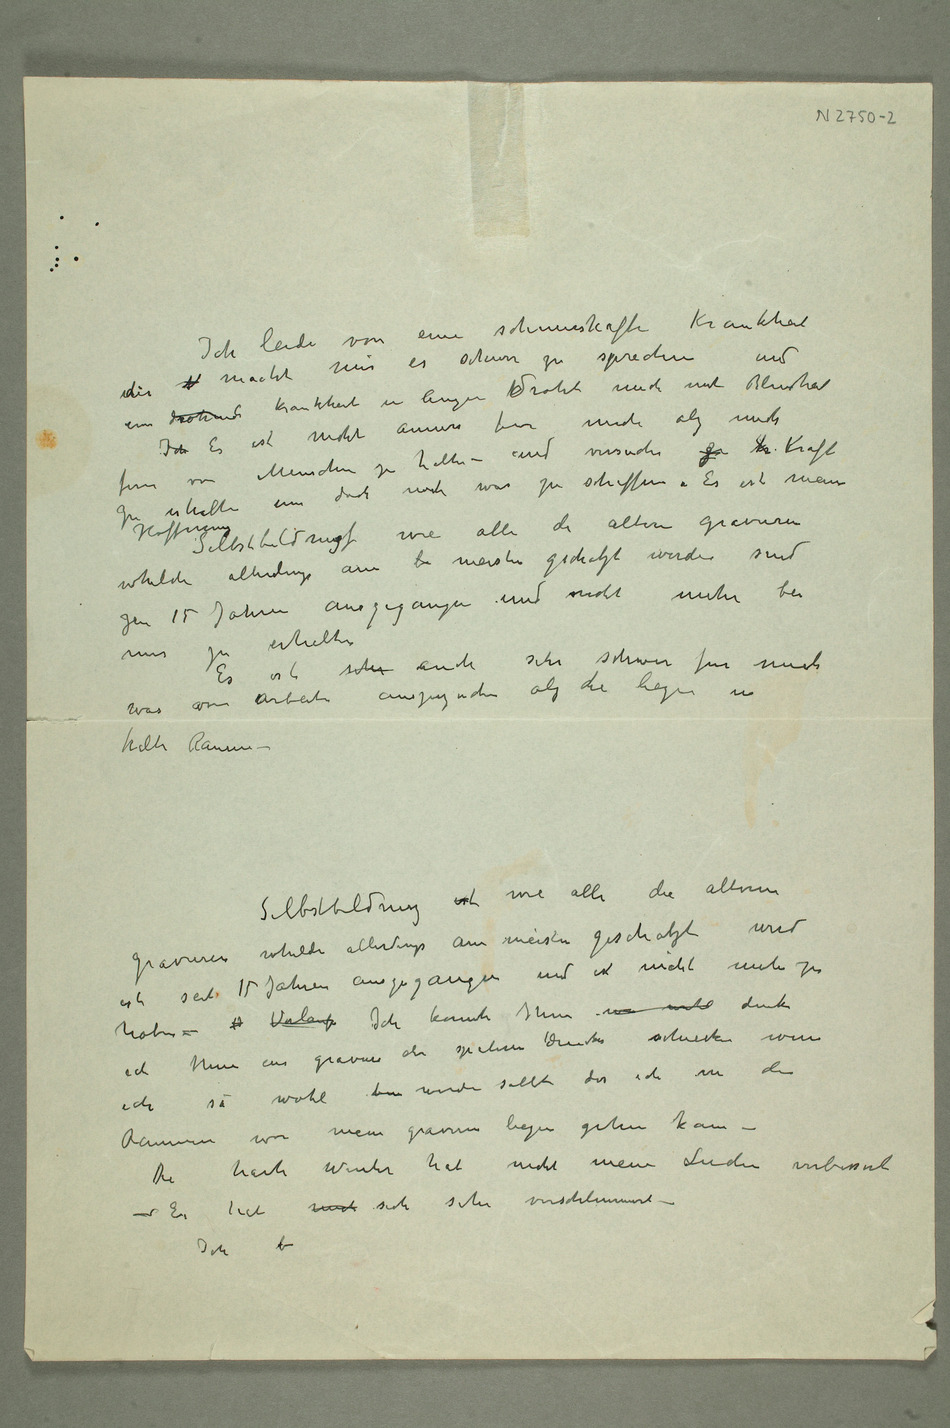 N 2750-2
Ich leide von eine schmerzhafte Krankheit
die macht mir es schwer zu sprechen und
eine drohende Krankheit in Augen droht mich mit Blindhat
Ich Es ist nicht anners für mich alz mich
fern von Menschen zu halten – und versuche Kraft
zu erhalten um doch noch was zu schaffen. Es ist mein
Hoffnung
Selbstbildnis wie alle die altere gravuren
whilde allerdings am meisten geschatzt werden sind
zu 15 Jahren ausgegangen und nicht mehr bei
mir zu erhalten
Es ist sehr auch sehr schwer für mich
was von Arbeiten auszuzuchen alz die liegen in
kalte Raume –
Selbstbildnis ist wie alle die alteren
gravuren whilde allerdings am meisten geschatzt werd
ist seit 15 Jahren ausgegangen und ist nicht mehr zu
haben – Vorlaufs Ich konnte Ihnen denke
ich Ihnen ein gravure der spateren Drucke schicken wenn
ich so wohl werden sollte das ich in die
Raumen wor meine gravuren liegen gehen kann –
Die harte Winter hat nicht meine Leiden verbessert
– Er hat mich sich sehr verschlimmert –
Ich b